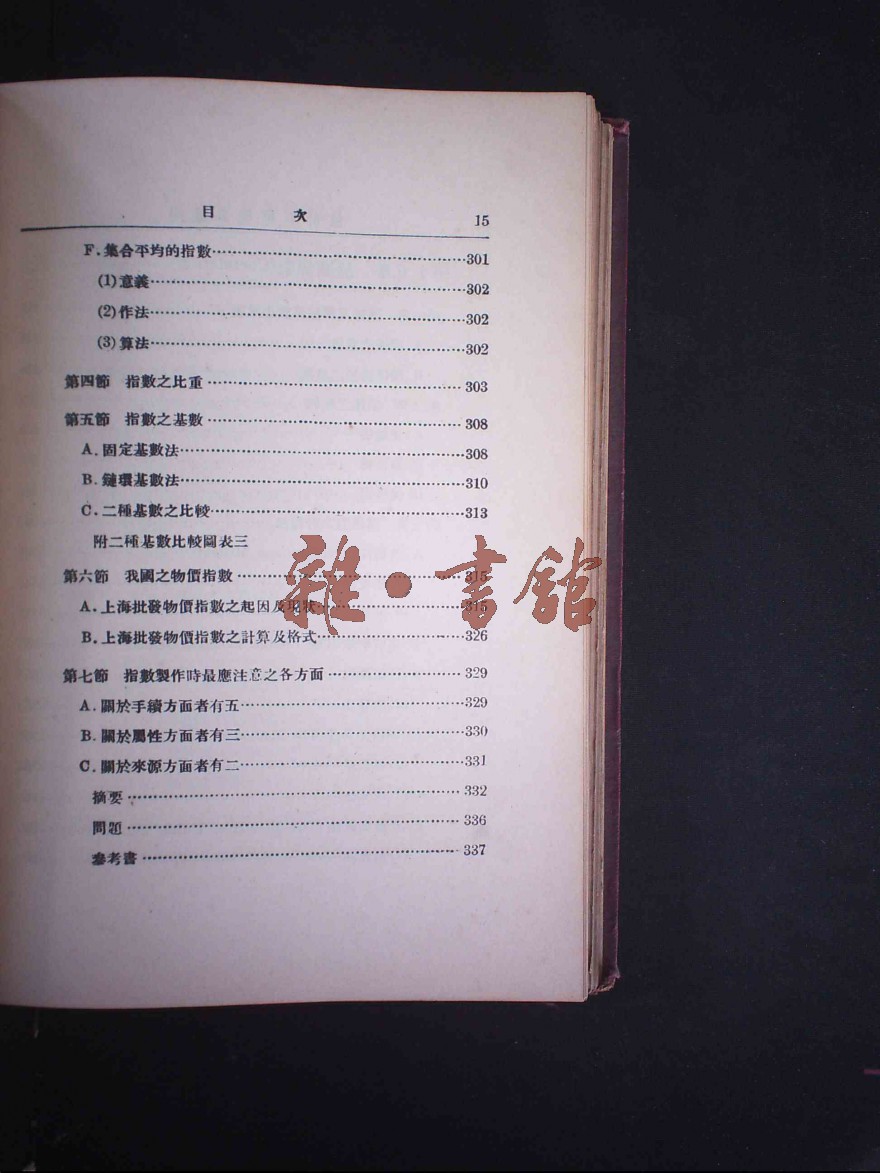 目 次 15
F.集合平均的指數…301
(1)意義…302
(2)作法…302
(3)算法…302
第四節 指數之比重…303
第五節 指數之基數…308
A.固定基數法…308
B.鏈環基數法…310
C.二種基數之比較…313
附二種基數比較圖表三
第六節 我國之物價指數…315
A.上海批發物價指數之起因及現狀…315
B.上海批發物價指數之計算及格式…326
第七節 指數製作時最應注意之各方面…329
A.關於手續方面者有五…329
B.關於屬性方面者有三…330
C.關於來源方面者有二…331
摘要…332
問題…336
參考書…337
雜·書館